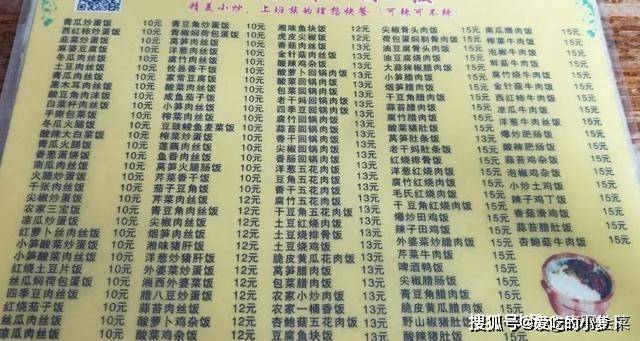 精美小炒,上班族的理想快餐 可辣可不辣
青瓜炒蛋饭 10元
西红柿炒蛋饭 10元
韭菜炒蛋饭 10元
麻婆豆腐饭 10元
冬瓜肉丝饭 10元
土豆肉丝饭 10元
青瓜肉丝饭 10元
黑木耳肉丝饭 10元
酸豆角肉沫饭 10元
白菜杆肉丝饭 10元
手撕包菜饭 10元
冬瓜火腿饭 10元
酸辣大白菜饭 10元
青瓜火腿饭 10元
香葱蛋饼饭 10元
南瓜肉丝饭 10元
火腿炒蛋饭 10元
千张肉丝饭 10元
尖椒炒蛋饭 10元
农家三宝饭 10元
凉瓜炒蛋饭 10元
红萝卜丝肉丝饭 10元
小笋酸菜炒蛋饭 10元
小笋酸菜肉丝饭 10元
红烧土豆片饭 10元
丝瓜焖荷包蛋饭 10元
四季豆肉丝饭 10元
红烧茄子饭 10元
丝瓜肉丝饭 10元
凉瓜肉丝饭 10元
青豆角炒蛋饭 10元
青椒焖荷包蛋饭 10元
莴笋肉丝饭 10元
香菇肉丝饭 10元
腐竹肉丝饭 10元
攸县香干饭 10元
家常豆腐饭 10元
酸菜肉丝饭 10元
咸鱼茄子饭 10元
小笋肉丝饭 10元
榨菜肉丝饭 10元
豆豉鲮鱼麦菜饭 10元
榨菜炒蛋饭 10元
莲藕肉丝饭 10元
鱼香肉丝饭 10元
莴笋火腿肠饭 10元
芹菜香干饭
茄子豆角饭
芹菜肉丝饭
青豆角肉丝饭 12元
尖椒肉丝饭 12元
香菇肉丝饭 12元
湘味猪肝饭 12元
洋葱炒猪肝饭 12元
外婆菜炒蛋饭 12元
湘西外婆菜饭 12元
腊八豆炒蛋饭 12元
酸菜鸡杂饭 12元
酸萝卜鸡杂饭 12元
湘味鱼块饭 12元
虎皮尖椒饭 12元
香菇肉饭 12元
金针菇肉丝饭
酸辣鸡杂饭
酸萝卜回锅肉饭
酸菜回锅肉饭
包菜回锅肉饭
老干妈回锅肉饭
四季豆回锅肉饭
腐竹回锅肉饭
蒜苔回锅肉饭
香干回锅肉饭
香肠回锅肉饭
洋葱五花肉饭
豆角五花肉饭
香干五花肉饭
腐竹五花肉饭
干豆角五花肉饭 13元
土豆红烧肉饭 13元
土豆烧排骨饭 13元
土豆烧鸡饭 13元
脆皮黄瓜花肉饭 13元
莴笋腊肉饭 13元
包菜腊肉饭 13元
农家小炒肉饭 13元
农家一桶香饭 13元
杏鲍菇五花肉饭 13元
豆腐鱼块饭 13元
尖椒骨头肉饭
荷包蛋剁骨肉饭
油豆腐骨头肉饭
油豆腐烧肉饭
大蒜辣椒腊肉饭
小笋腊肉饭
烟笋腊肉饭
干豆角腊肉饭
蒜苔腊肉饭
腐竹腊肉饭
酸菜猪肚饭
莴笋肚条饭
老干妈肚条饭
红烧排骨饭
红烧鱼块饭
洋葱红烧肉饭
腐竹红烧肉饭
毛氏红烧肉饭
干豆角红烧肉饭
爆炒田鸡饭
辣子田鸡饭
外婆菜炒腊肉饭 15元
芹菜牛肉饭 15元
啤酒鸭饭 15元
尖椒腊肉饭 15元
青豆角腊肉饭 15元
脆皮黄瓜腊肉饭 15元
野山椒猪肚饭
酸辣猪肚饭
南瓜腊肉饭 15元
榨菜牛肉饭 15元
泡椒牛肉饭 15元
鲜菇牛肉饭 15元
腐竹烧牛肉饭 15元
金针菇牛肉饭 15元
西红柿牛肉饭 15元
凉瓜牛肉饭 15元
洋葱牛肉饭 15元
爆炒肥肠饭 15元
酸辣肥肠饭 15元
蒜苔鸡杂饭 15元
泡椒鸡杂饭 15元
小炒土鸡饭 15元
辣子鸡丁饭 15元
香菇滑鸡饭 15元
蒜苔腊肚饭 15元
杏鲍菇牛肉饭 15元
搜狐号@爱吃的小萝卜